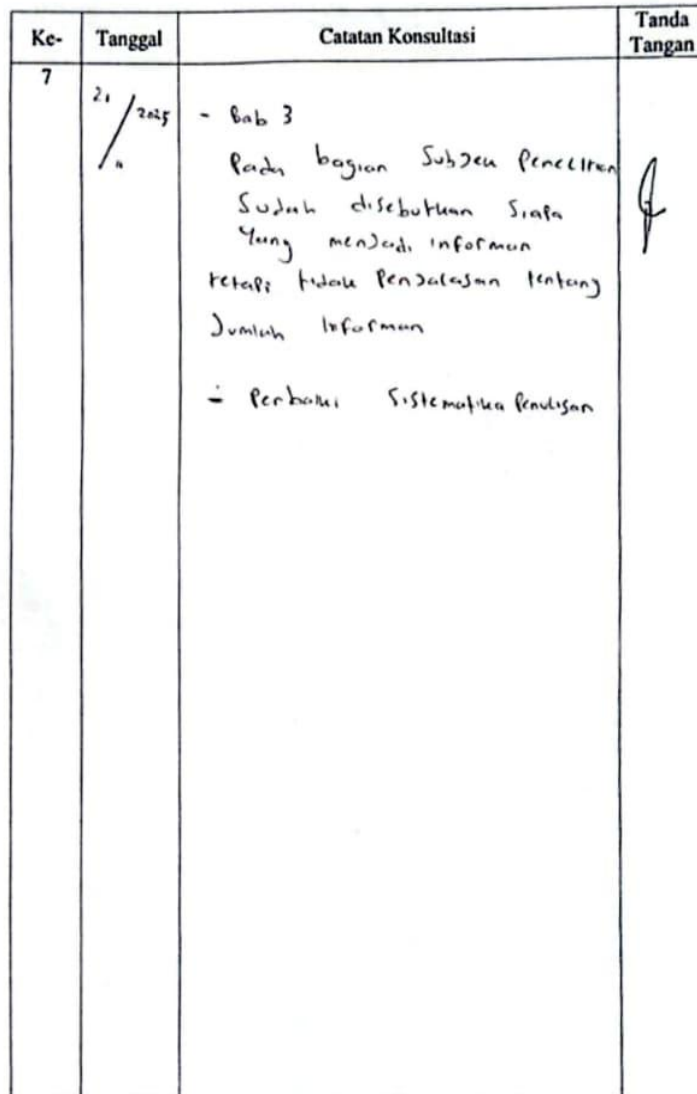 Ke- Tanggal Catatan Konsultasi Tanda Tangan
7
21/11 2025
- Bab 3
Pada bagian Subjek Penelitian
Sudah disebutkan Siapa
Yang menjadi informan
tetapi tidak Penjalasan tentang
Jumlah Informan
- Perbaiki Sistematika Penulisan